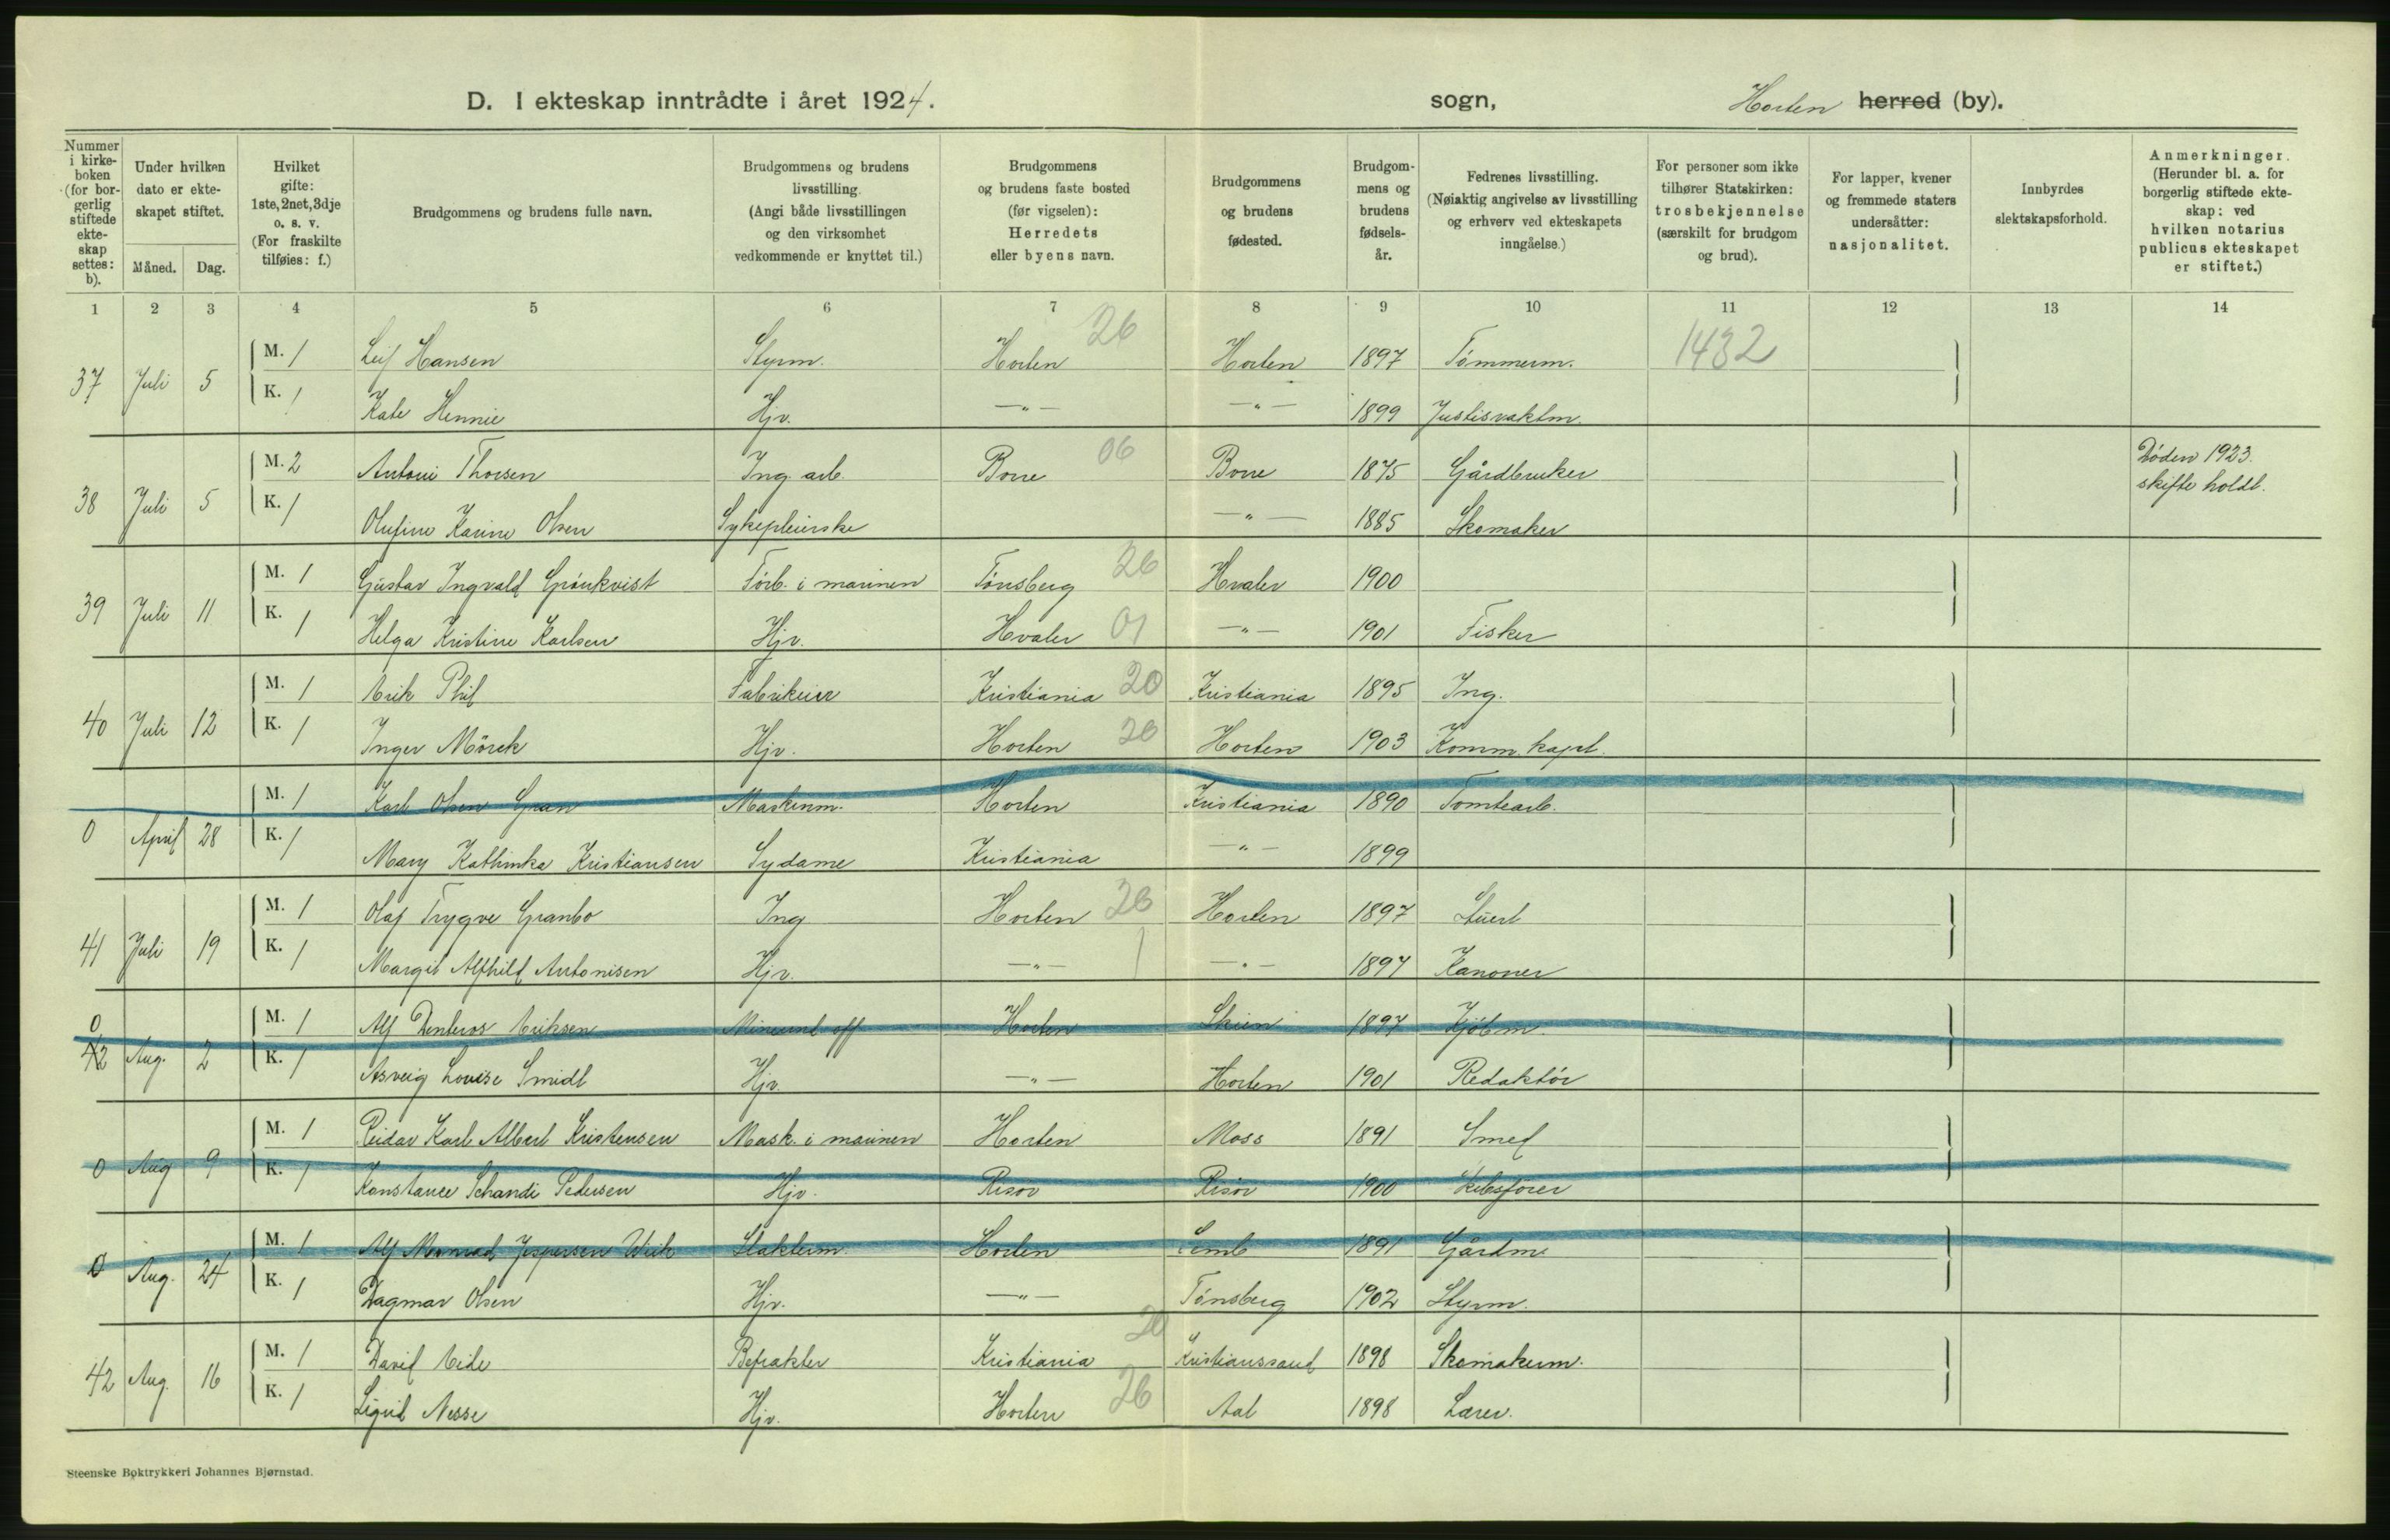 D. I ekteskap inntrådte i året 1924.
sogn,
Horten herred (by).
Nummer i kirkeboken (for borgerlig stiftede ekteskap settes: b).
Under hvilken dato er ekteskapet stiftet.
Måned. Dag.
Hvilket gifte: 1ste, 2net, 3dje o. s. v. (For fraskilte tilføies: f.)
Brudgommens og brudens fulle navn.
Brudgommens og brudens livsstilling. (Angi både livsstillingen og den virksomhet vedkommende er knyttet til.)
Brudgommens og brudens faste bosted (før vigselen): Herredets eller byens navn.
Brudgommens og brudens fødested.
Brudgommens og brudens fødselsår.
Fedrenes livsstilling. (Nøiaktig angivelse av livsstilling og erhverv ved ekteskapets inngåelse.)
For personer som ikke tilhører Statskirken: trosbekjennelse (særskilt for brudgom og brud).
For lapper, kvener og fremmede staters undersåtter: nasjonalitet.
Innbyrdes slektskapsforhold.
Anmerkninger. (Herunder bl. a. for borgerlig stiftede ekteskap: ved hvilken notarius publicus ekteskapet er stiftet.)
1 2 3 4 5 6 7 8 9 10 11 12 13 14
37 Juli 5 M. 1 Leif Hansen Styrm. Horten 26 Horten 1897 Tömmerm. 1432
K. 1 Kate Hennie Hjv. —"— —"— 1899 Justisvaktm.
38 Juli 5 M. 2 Antoni Thorsen Ing. arb. Borre 06 Borre 1875 Gårdbruker Döden 1923. skifte holdt.
K. 1 Olufine Karine Olsen Sykepleierske —"— 1885 Skomaker
39 Juli 11 M. 1 Gustav Ingvald Grönkvist Törb. i marinen Tönsberg 26 Hvaler 1900
K. 1 Helga Kristine Karlsen Hjv. Hvaler 01 —"— 1901 Fisker
40 Juli 12 M. 1 Erik Phil Fabrikeier Kristiania 20 Kristiania 1895 Ing.
K. 1 Inger Mörck Hjv. Horten 26 Horten 1903 Komm. kapt.
0 April 28 M. 1 Karl Olsen Gran Maskinm. Horten Kristiania 1890 Tomtearb.
K. 1 Mary Kathinka Kristiansen Sydame Kristiania —"— 1899
41 Juli 19 M. 1 Olaf Trygve Granbo Ing Horten 26 Horten 1897 Stuert
K. 1 Margit Alfhild Antonisen Hjv. —"— —"— 1897 Kanoner
0 42 Aug. 2 M. 1 Alf Eriksen off Horten Skien 1897 Kjöbm.
K. 1 Asveig Louise Smidt Hjv. —"— Horten 1901 Redaktör
0 Aug 9 M. 1 Reidar Karl Albert Kristensen Mask. i marinen Horten Moss 1891 Smed
K. 1 Konstance Schandi Pedersen Hjv. Risör Risör 1900 Skibsförer
0 Aug. 24 M. 1 Alf Jespersen Wiik Slakterm. Horten 1891 Gårdm.
K. 1 Dagmar Olsen Hjv. —"— Tönsberg 1902 Styrm.
42 Aug. 16 M. 1 David Eide Befrakter Kristiania 20 Kristianssand 1898 Skomakerm.
K. 1 Sigrid Nesse Hjv. Horten 26 Aal 1898 Lærer.
Steenske Boktrykkeri Johannes Bjørnstad.